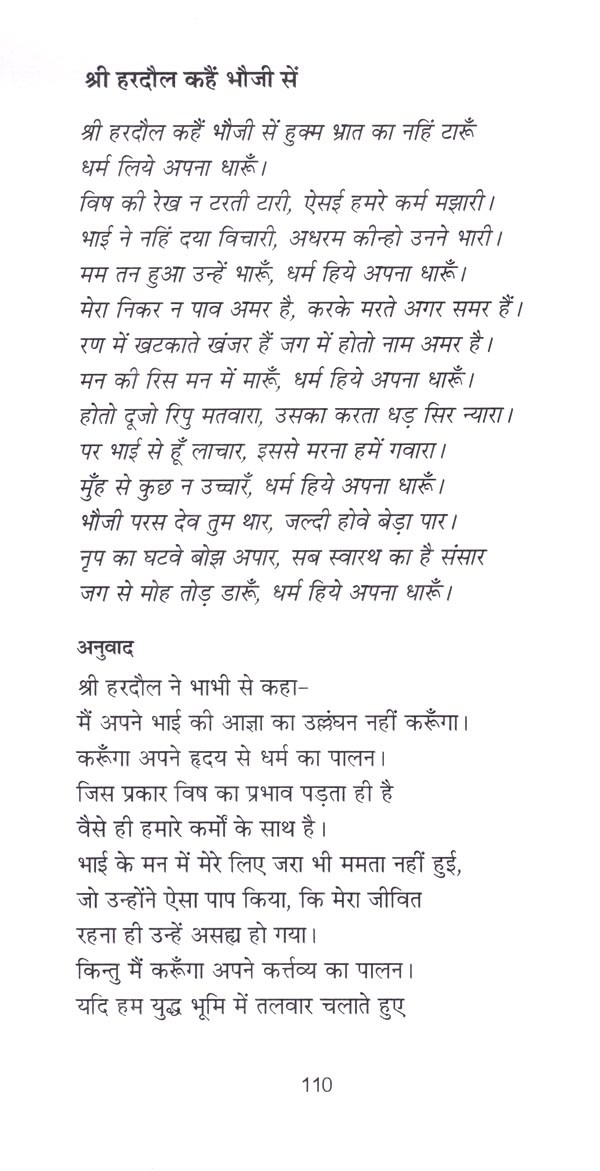 श्री हरदौल कहैं भौजी सें
श्री हरदौल कहैं भौजी सें हुक्म भ्रात का नहिं टारूँ
धर्म लिये अपना धारूँ।
विष की रेख न टरती टारी, ऐसई हमरे कर्म मझारी।
भाई ने नहिं दया विचारी, अधरम कीन्हो उनने भारी।
मम तन हुआ उन्हें भारूँ, धर्म हिये अपना धारूँ।
मेरा निकर न पाव अमर है, करके मरते अगर समर हैं।
रण में खटकाते खंजर हैं जग में होतो नाम अमर है।
मन की रिस मन में मारूँ, धर्म हिये अपना धारूँ।
होतो दूजो रिपु मतवारा, उसका करता धड़ सिर न्यारा।
पर भाई से हूँ लाचार, इससे मरना हमें गवारा।
मुँह से कुछ न उच्चारँ, धर्म हिये अपना धारूँ।
भौजी परस देव तुम थार, जल्दी होवे बेड़ा पार।
नृप का घटवे बोझ अपार, सब स्वारथ का है संसार
जग से मोह तोड़ डारूँ, धर्म हिये अपना धारूँ।
अनुवाद
श्री हरदौल ने भाभी से कहा–
मैं अपने भाई की आज्ञा का उल्लंघन नहीं करूँगा।
करूँगा अपने हृदय से धर्म का पालन।
जिस प्रकार विष का प्रभाव पड़ता ही है
वैसे ही हमारे कर्मों के साथ है।
भाई के मन में मेरे लिए जरा भी ममता नहीं हुई,
जो उन्होंने ऐसा पाप किया, कि मेरा जीवित
रहना ही उन्हें असह्य हो गया।
किन्तु मैं करूँगा अपने कर्त्तव्य का पालन।
यदि हम युद्ध भूमि में तलवार चलाते हुए
110